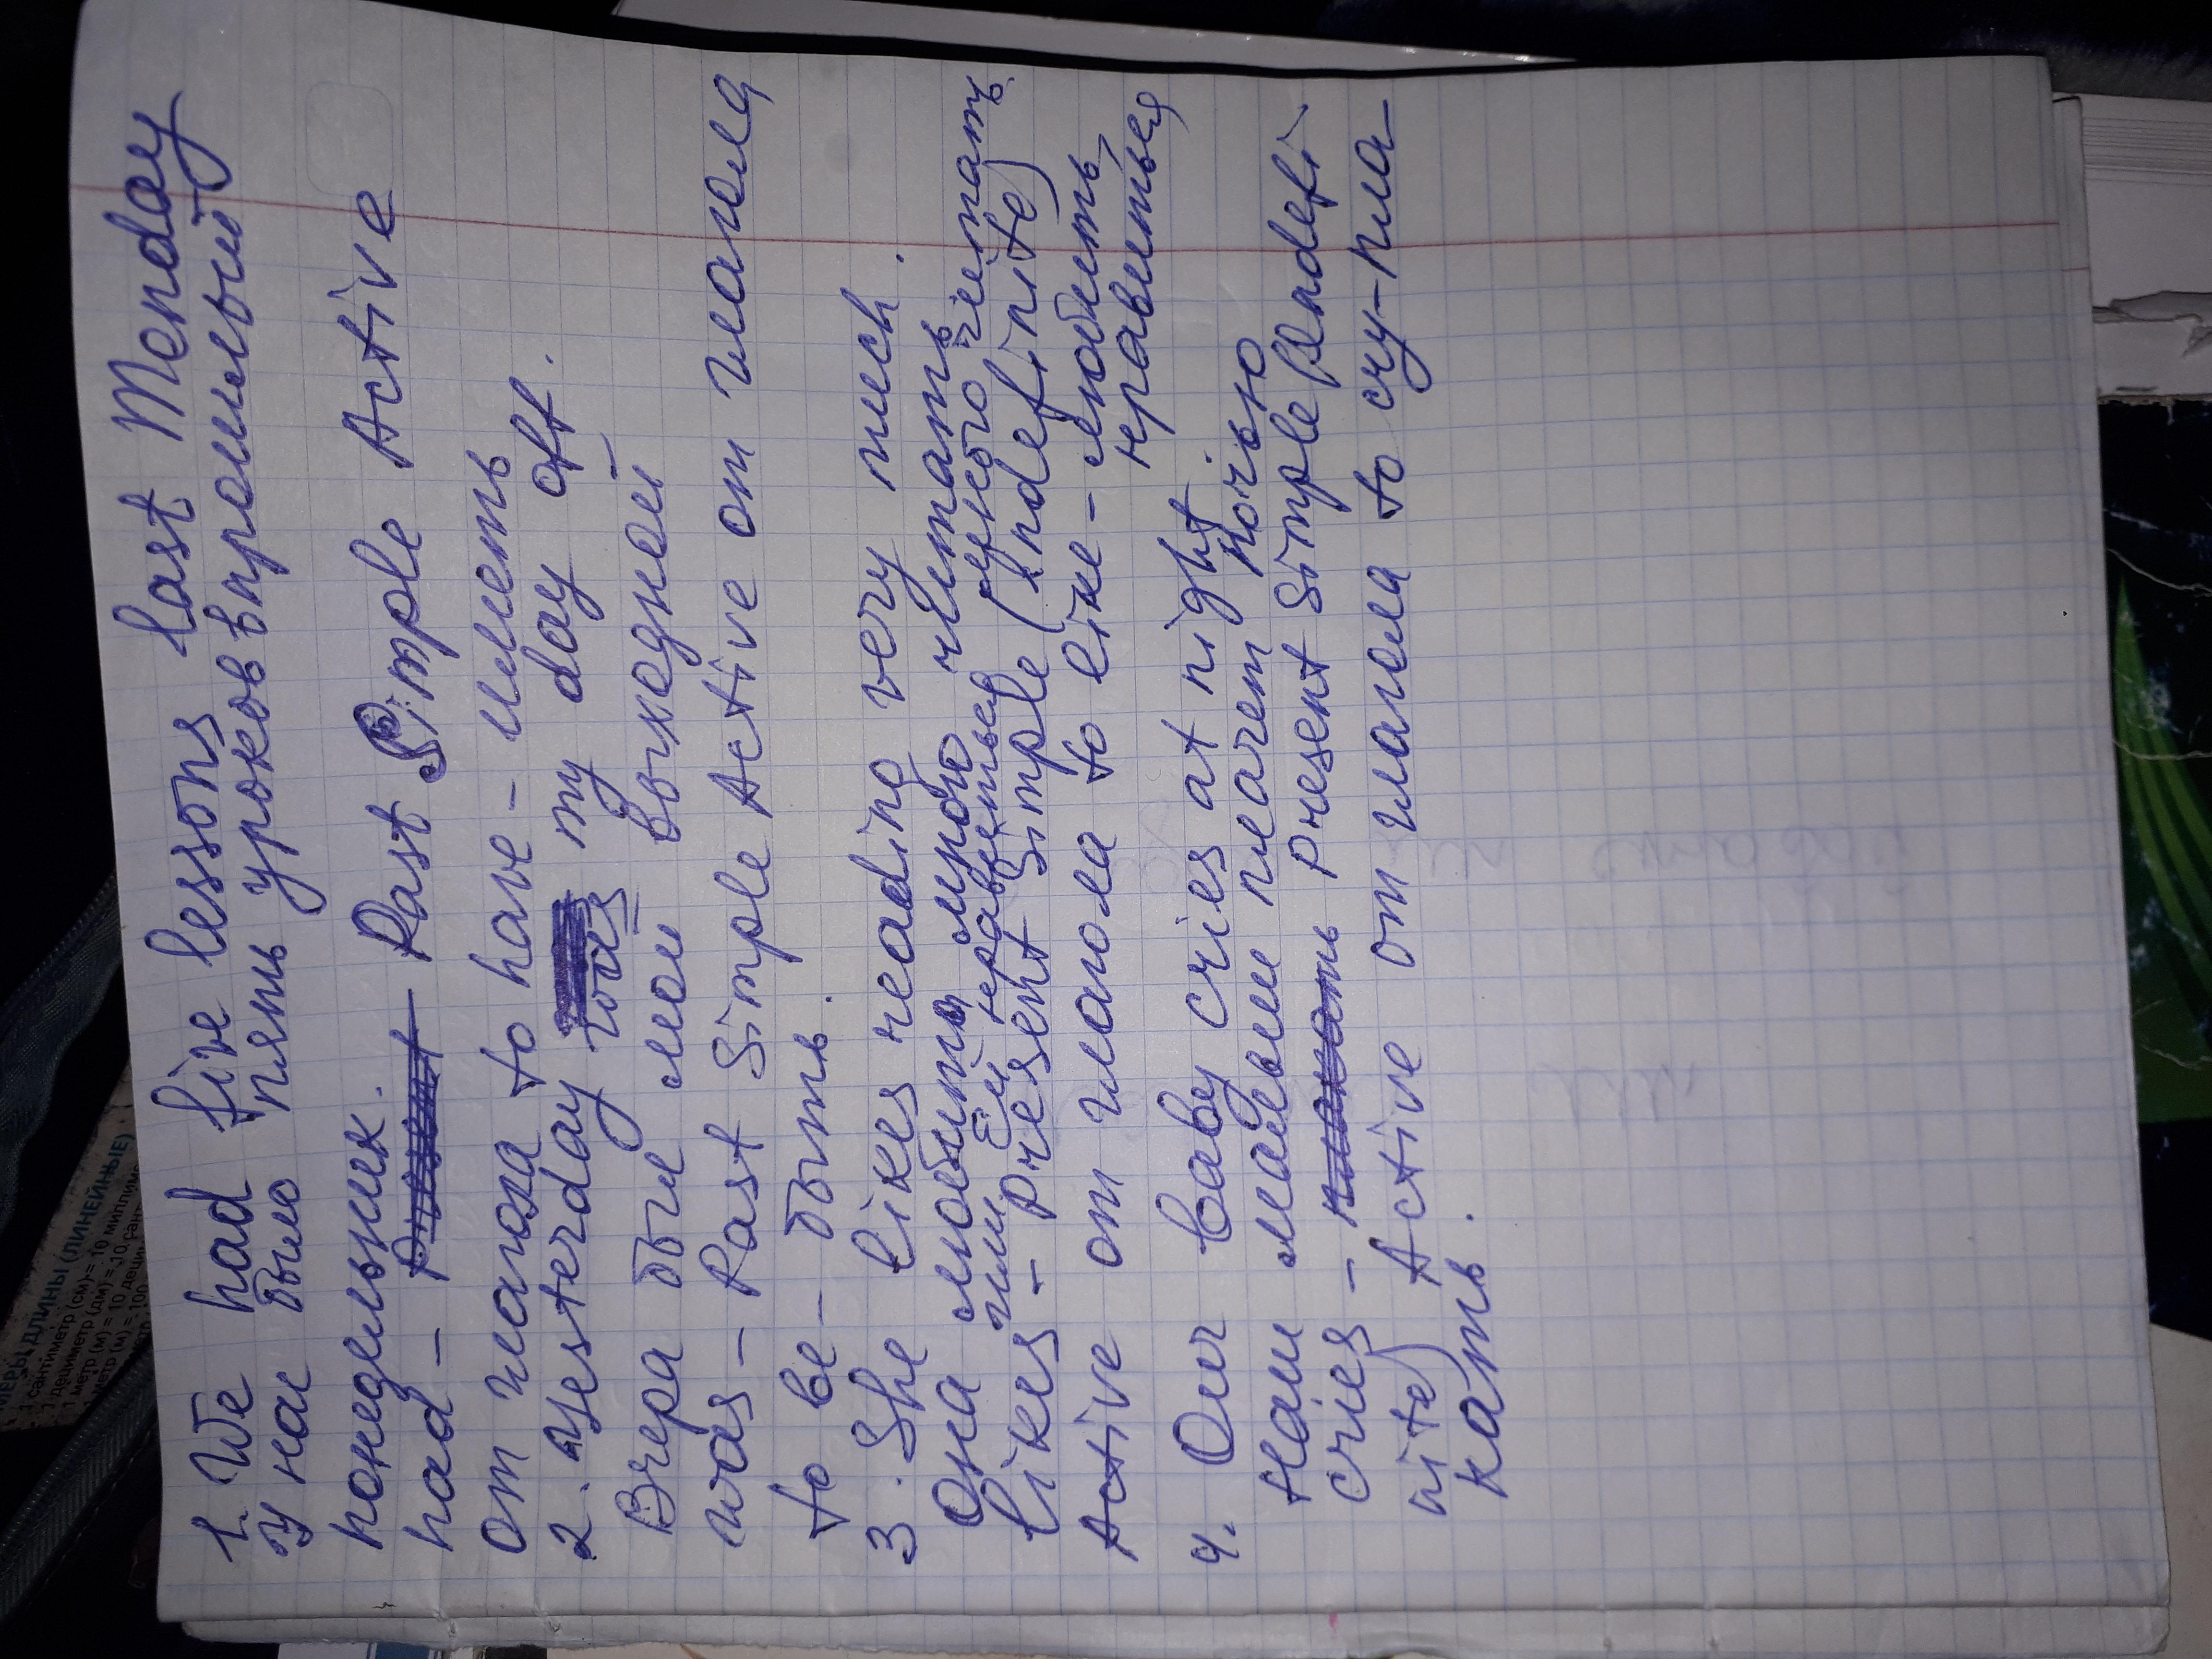 1. We had five lessons last Menday
У нас было пять уроков в прошлый
понедельник.
had - Past Simple Active
от глагола to have - иметь
2. Yesterday was my day off.
Вчера был мой выходной
was - Past Simple Active от глагола
to be - быть.
3. She likes reading very much.
Она любит читать
Ей нравиться читать
likes - Present Simple (Indefinite)
Active от глагола to like - любить,
нравиться
4. Our baby cries at night
Наш малыш плачет ночью
cries - Present Simple (Indefi
nite) Active от глагола to cry - пла-
кать.
МЕРЫ ДЛИНЫ (ЛИНЕЙНЫЕ)
1 сантиметр (см) = 10 миллим
1 дециметр (дм) = 10 сант
1 метр (м) = 10 деци
метр (м) = 100